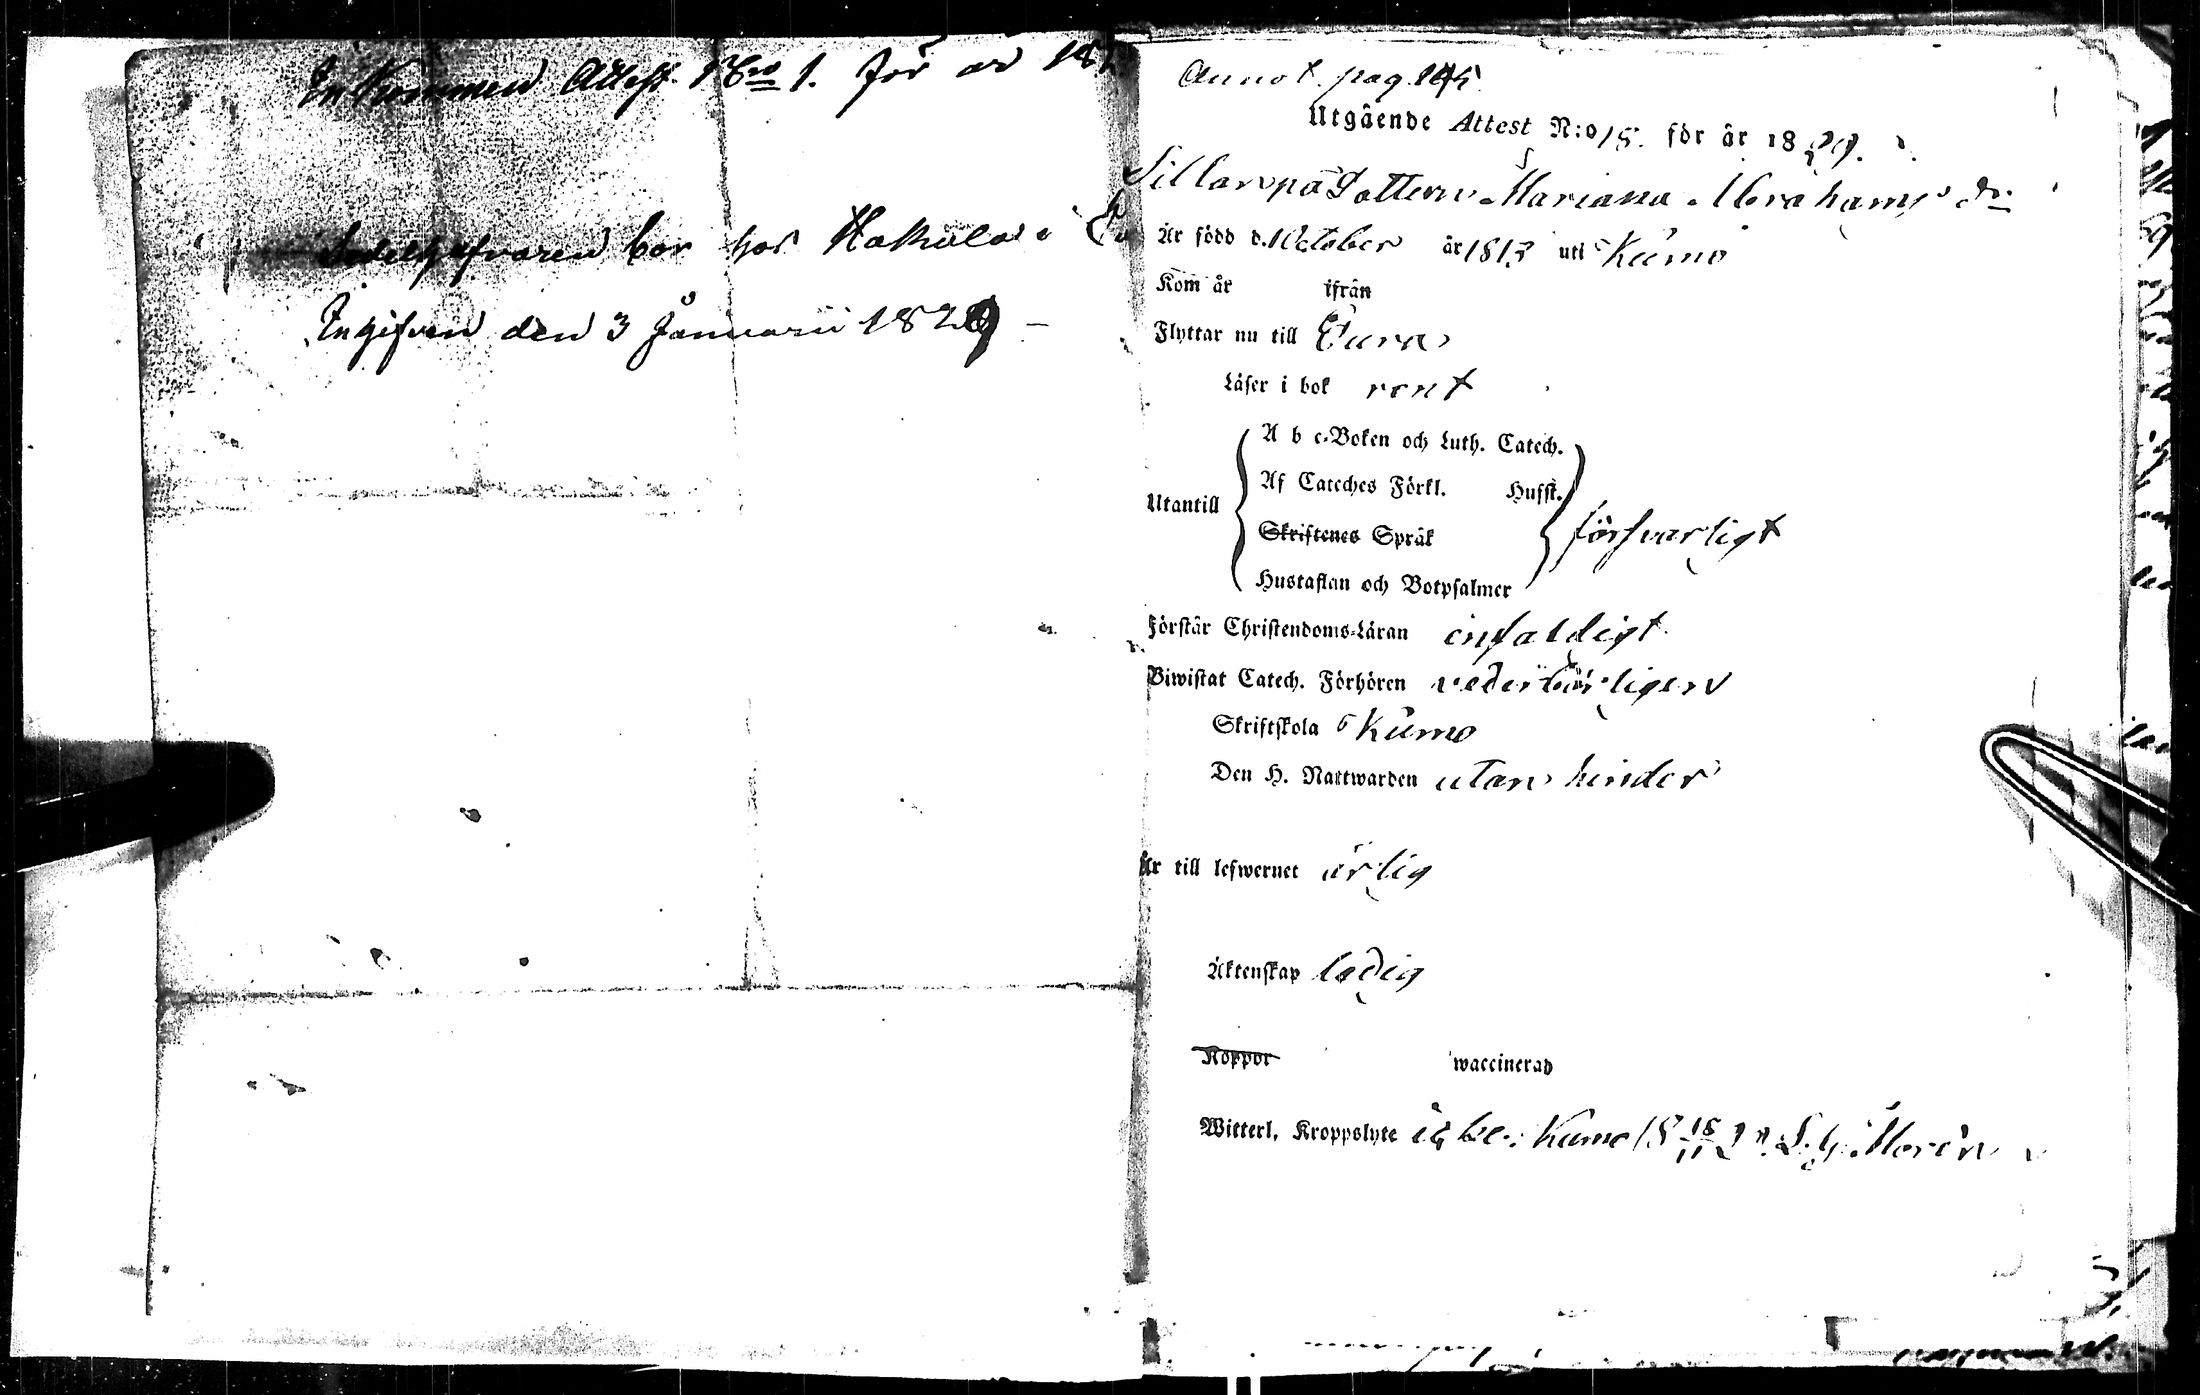 Inkommen Attest N:ro 1. för år 18
Sedelgifvaren bor hos Hakkula i
Ingifven den 3 Januarii 1829
Annot. pag. 145
Utgående Attest N:o 15. för år 1829.
Sillanpä Dottern Mariana Abrahams dr
Är född d. 1 October år 1813 uti Kumo
Kom år ifrån
Flyttar nu till Eura
Läser i bok rent
A b c-Boken och Luth. Catech.
Af Cateches Förkl. Husft.
Utantill
Skriftenes Språk
försvarligt
Hustaflan och Botpsalmer
Förstår Christendoms-Läran enfaldigt
Biwistat Catech. Förhören vederbörligen
Skriftskola i Kumo
Den H. Nattwarden utan hinder
Är till lefwernet ärlig
Äktenskap ledig
Koppor waccinerad
Witterl. Kroppslyte Kumo 18 18/11 29 Morén